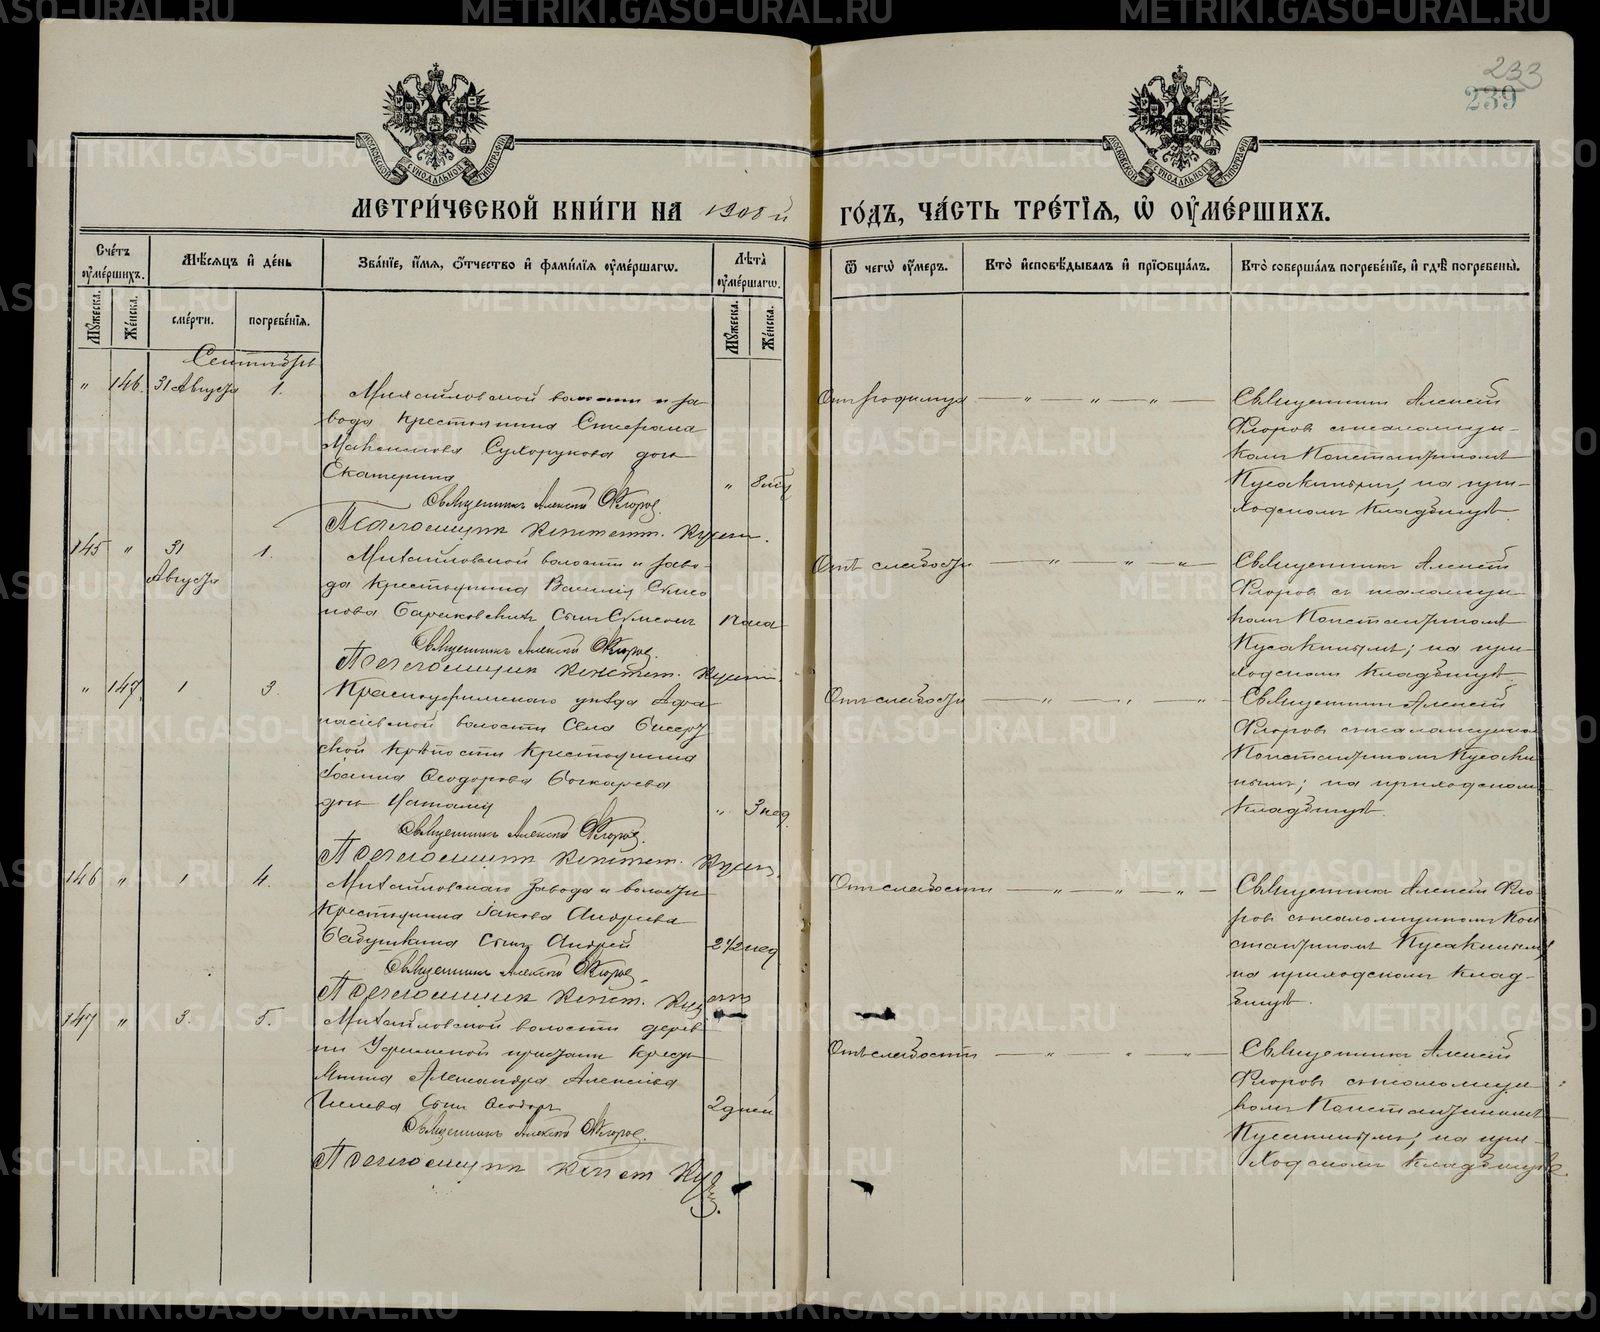 233
239
МОСКОВСКОЙ СѴНОДАЛЬНОЙ ТИПОГРАФІИ
МОСКОВСКОЙ СѴНОДАЛЬНОЙ ТИПОГРАФІИ
МЕТРИ́ЧЕСКОЙ КНИ́ГИ НА 1908 й ГО́ДЪ, ЧА́СТЬ ТРЕ́ТІѦ, Ѡ҆ ОУ҆МЕ́РШИХЪ.
Сче́тъ оу҆ме́ршихъ.
Мꙋ́жеска.
Же́нска.
Мѣ́сѧцъ и҆ де́нь
сме́рти.
погребе́нїѧ.
Зва́нїе, и҆́мѧ, ѻ҆́тчество и҆ фами́лїѧ оу҆ме́ршагѡ.
Лѣ́та оу҆ме́ршагѡ.
Мꙋ́жеска.
Же́нска.
Ѿ чегѡ̀ оу҆́меръ.
Кто̀ и҆сповѣ́дывалъ и҆ прїѡбща́лъ.
Кто̀ соверша́лъ погребе́нїе, и҆ гдѣ̀ погребены̀.
Сентябрь
" 146. 31 Августа 1.
Михайловской волости и за-
вода крестьянина Стефана
Максимова Сухорукова дочь
Екатерина
" 8 мѣс
Священникъ Алексій Флоровъ.
Псаломщикъ Констант. Кусакин.
От родимца — " — " — " —
Священникъ Алексій
Флоровъ съ псаломщи-
комъ Константиномъ
Кусакинымъ, на при-
ходскомъ кладбищѣ.
145 " 31 Августа 1.
Михайловской волости и заво-
да крестьянина Василія Симео
нова сынъ Симеонъ
Священникъ Алексій Флоровъ.
Псаломщикъ Констант. Кусакин.
Отъ слабости — " — " — " —
Священникъ Алексій
Флоровъ съ псаломщи-
комъ Константиномъ
Кусакинымъ; на при-
ходскомъ кладбищѣ.
" 147. 1 3.
Красноуфимскаго уѣзда Афа-
насіевской волости села Бисерт
ской крѣпости крестьянина
Іоанна Ѳеодорова Бочкарева
дочь Наталія
" 3 нед.
Священникъ Алексій Флоровъ.
Псаломщикъ Констант. Кусакин.
Отъ слабости — " — " — " —
Священникъ Алексій
Флоровъ съ псаломщикомъ
Константиномъ Кусаки
нымъ; на приходскомъ
кладбищѣ.
146 " 1 4.
Михайловскаго завода и волости
крестьянина Іакова Андреева
Бабушкина сынъ Андрей
2 1/2 нед
Священникъ Алексій Флоровъ.
Псаломщикъ Конст. Кусакин
Отъ слабости — " — " — " —
Священникъ Алексій Фло-
ровъ съ псаломщикомъ Кон
стантиномъ Кусакинымъ
на приходскомъ клад-
бищѣ.
147 " 3. 5.
Михайловской волости дерев
ни Уфимской пристани кресть
янина Александра Алексѣева
сынъ Ѳеодоръ
2 дней
Священникъ Алексій Флоровъ.
Псаломщикъ Конст Кусакин.
Отъ слабости — " — " — " —
Священникъ Алексій
Флоровъ съ псаломщи-
комъ Константиномъ
Кусакинымъ, на при-
ходскомъ кладбищѣ.
METRIKI.GASO-URAL.RU